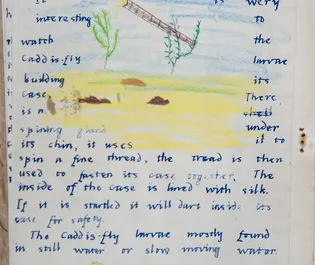 is very
interesting to
watch the
Caddis-fly larvae
building its
case. There
is a shell
spining gland under
its chin, it uses it to
spin a fine thread, the tread is then
used to fasten its case together. The
inside of the case is lined with silk.
If it is startled it will dart inside its
case for safety.
The Caddis-fly larvae mostly found
in still water or slow moving water.